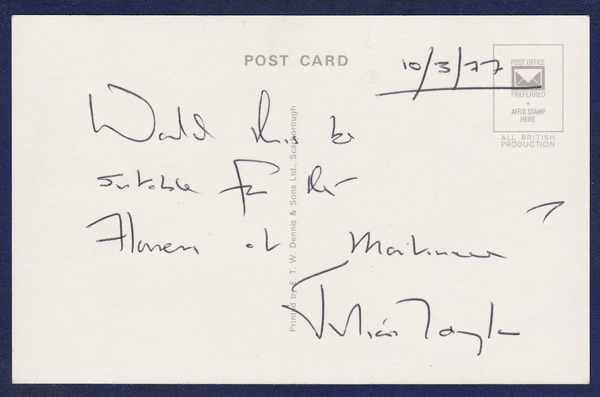 POST CARD
10/3/77
POST OFFICE
PREFERRED
AFFIX STAMP
HERE
ALL BRITISH
PRODUCTION
Would this be
suitable for the
Flowers at
Printed by E. T. W. Dennis & Sons Ltd., Scarborough